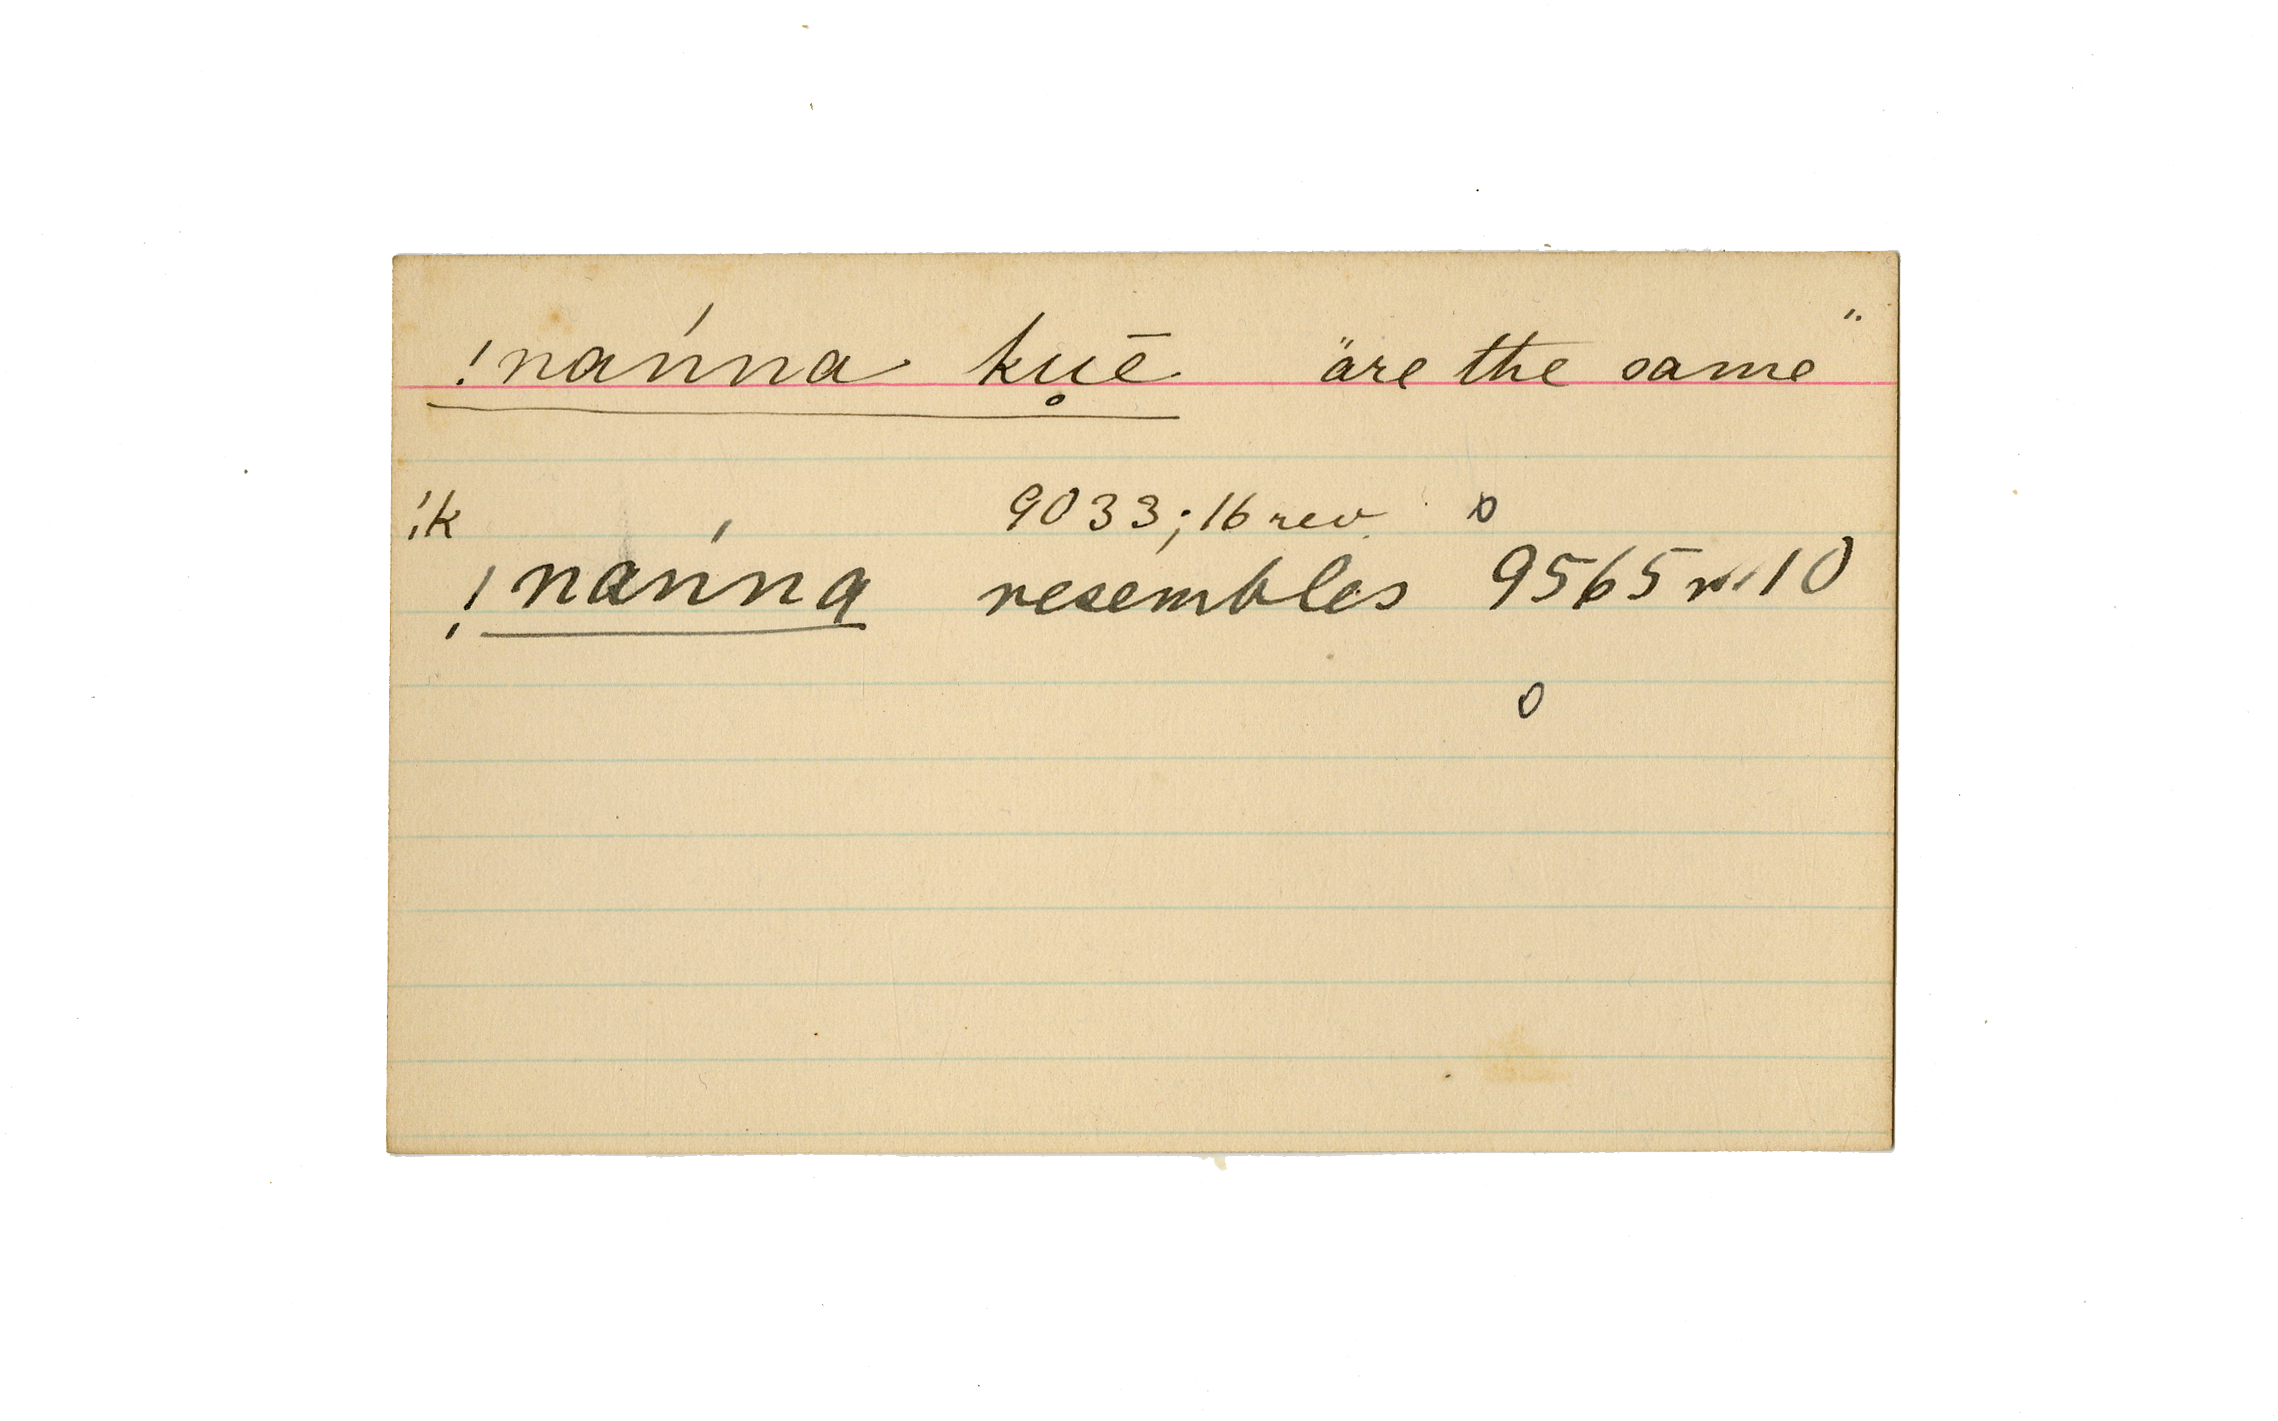 !nań́na ku̥ē "are the same"
!k 9033; 16 rev. D
!nań́na resembles 9565 rev 10
D